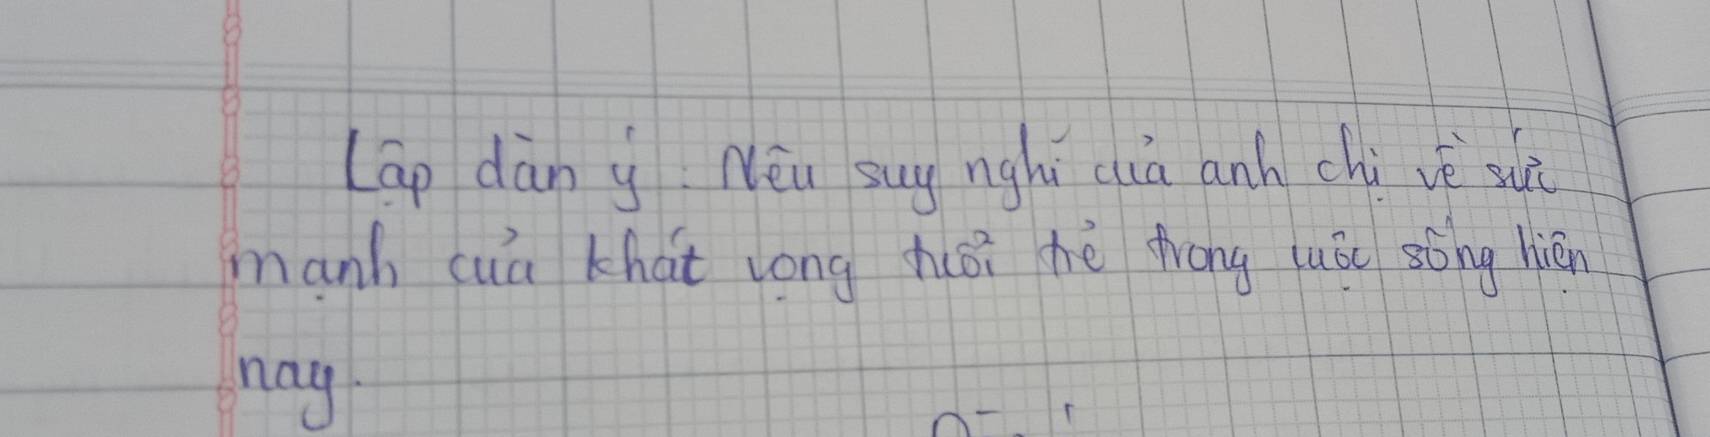 Lập dàn ý : Nêu suy nghĩ của anh chị về sức
mạnh của khát vọng tuổi trẻ trong cuộc sống hiện
nay.